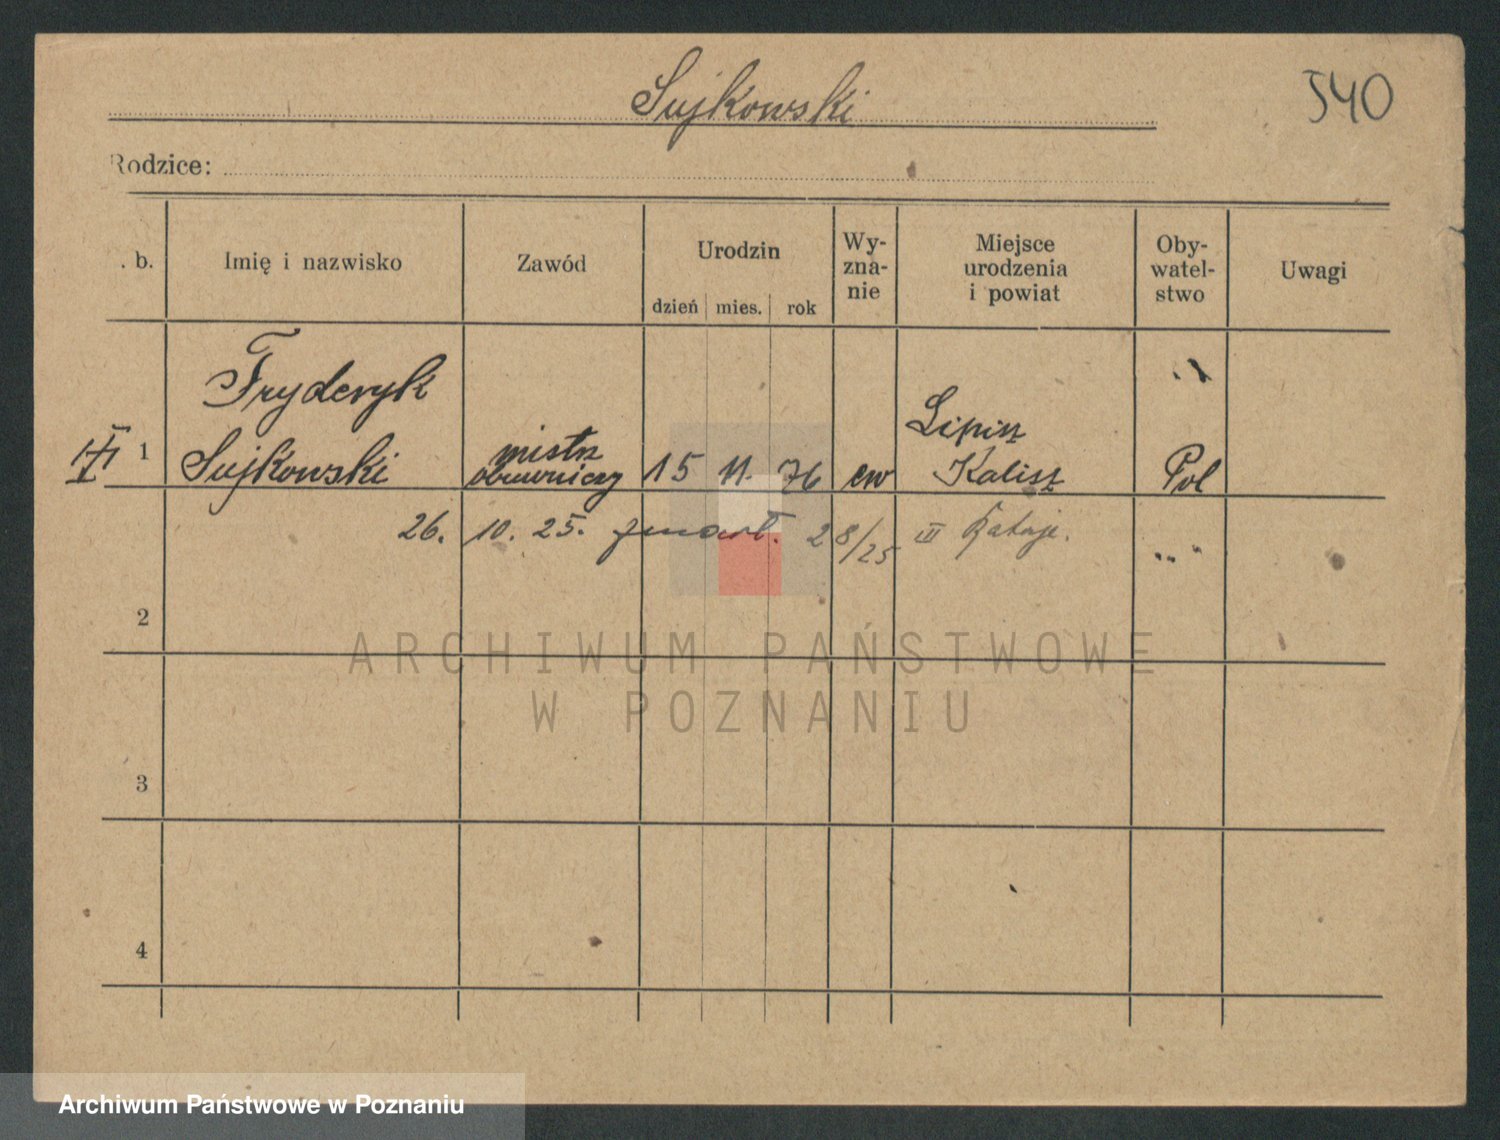 Sujkowski
540
Rodzice:
. b. Imię i nazwisko Zawód Urodzin dzień mies. rok Wy-zna-nie Miejsce urodzenia i powiat Oby-watel-stwo Uwagi
Fryderyk
1 Sujkowski mistrz obuwniczy 15 11. 76 ew Lipisz Kalisz Pol
26. 10. 25. zmarł. 28/25 III Rataje.
2
3
4
ARCHIWUM PAŃSTWOWE
W POZNANIU
Archiwum Państwowe w Poznaniu